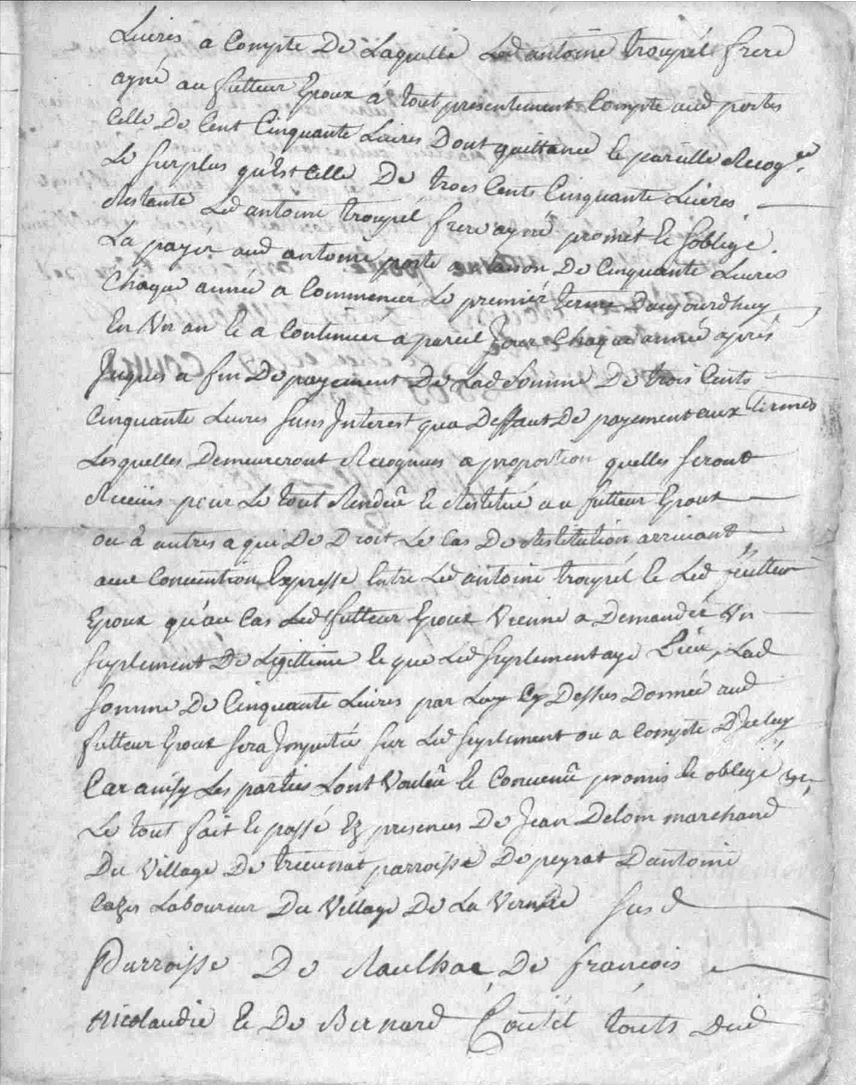 Livres a Compte De Laquelle Led antoine troupel frere
ayné au futteur Epoux a tout presentement Compte aud portes
Celle De Cent Cinquante Livres Dont quittance le pareille Recog.ce
Le surplus qu'Est Celle De trois Cents Cinquante Livres
Restante Led antoine troupel frere ayné promet le soblige
La payer aud antoine porte a raison De Cinquante Livres
Chaque année a Commencer Le premier terme Daujourdhuy
En Un an le a Continuer a pareil Jour Chaque année après
Juques a fin De payement De Lad Somme De trois Cents
Cinquante Livres sans Interest qua Deffaut De payement aux termes
Lesquelles Demeureront Recognues a proportion quelles seront
Receues pour Le tout Rendeu le Restitué au futteur Epoux
ou à autres a qui De Droit Le Cas De Restitution arrivant
avec Convention Expresse Entre Led antoine troupel le Led futteur
Epoux qu'au Cas Led futteur Epoux Vienne a Demander Un
suplement De Legittime le que Led suplement aye Lieu, Lad
somme De Cinquante Livres par Luy Cy Dessus Donnée aud
futteur Epoux sera Imputée sur Led suplement ou a Compte D'iceluy
Car ainsy Les parties Lont Vouleu le Conveneu promis le obligé
Le tout fait le passé Ez presences De Jean Delom marchand
Du Village De parroisse De peyrat Dantoine
Cazes Laboureur Du Village De La Vernhe susd
Parroisse De Raulhac De françois
Nicolaudie le De Bernard Coutel touts Dud